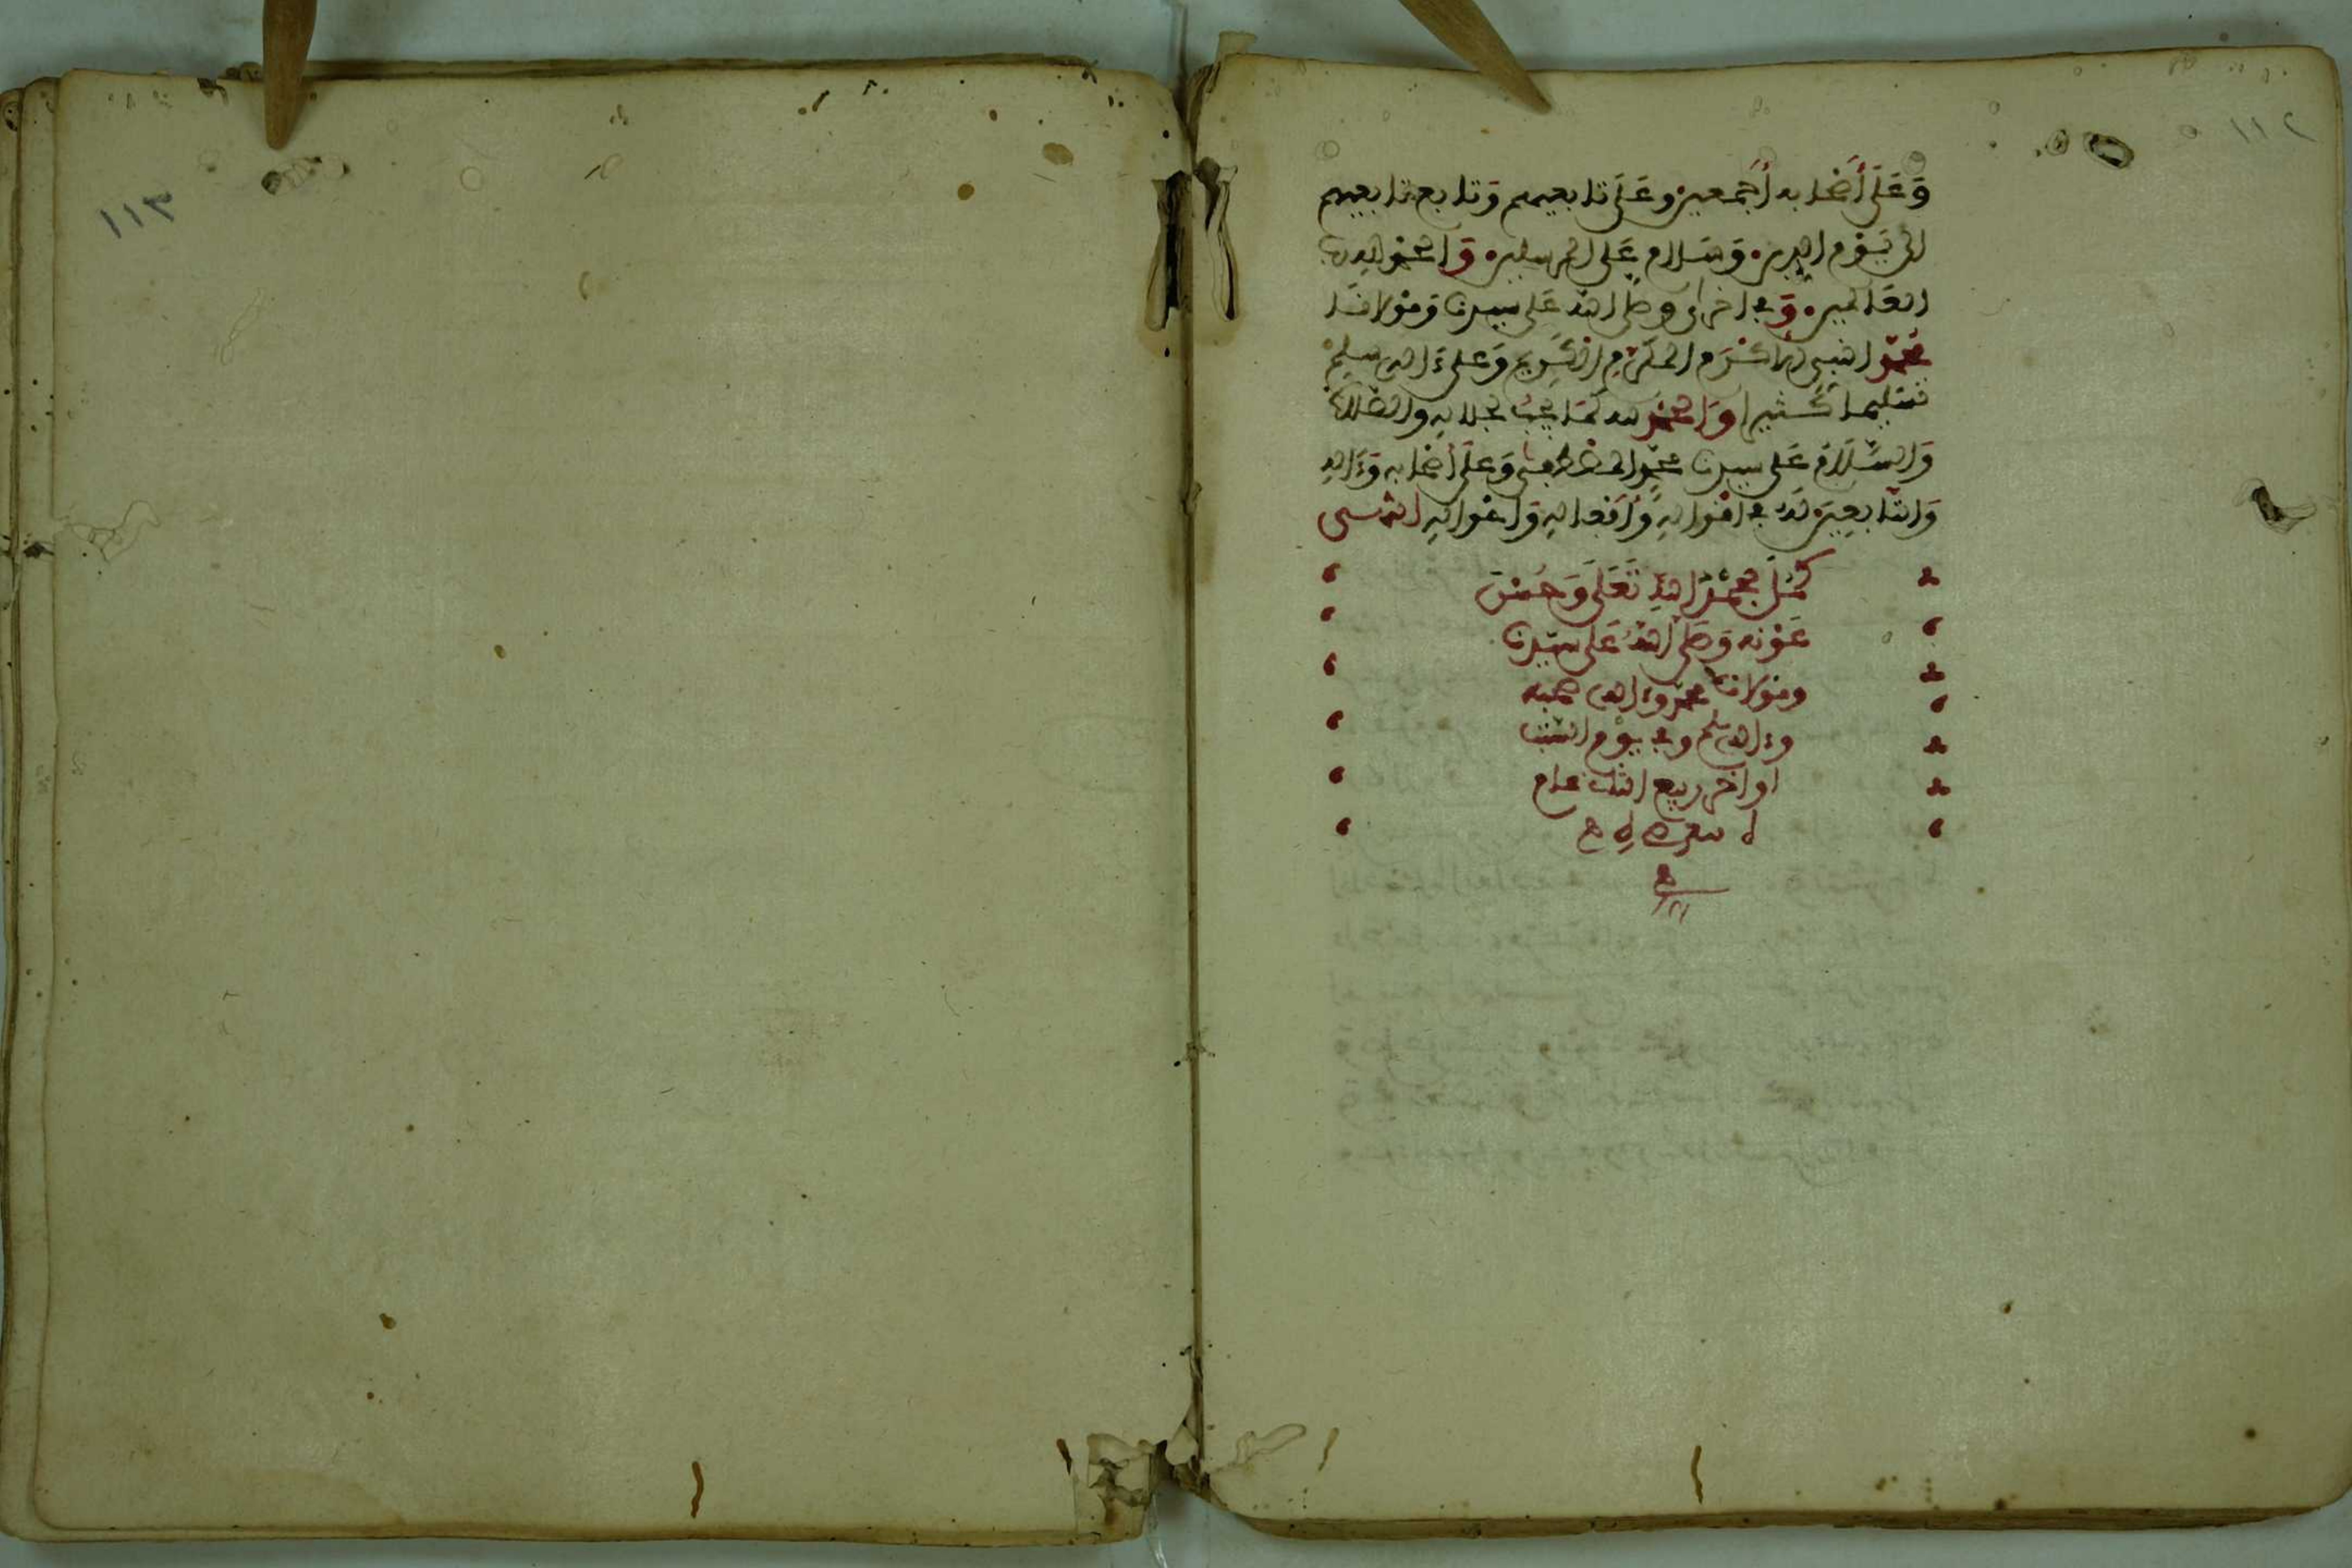 ١١٢
وَعَلَى أَصْحَابه أَجْمعين وعَلَى تابعيهم وَتابع تابعيهم
الى يَوْم الدين وَسَلام عَلى المرسلين وَالحمْد لله رب
العَالمين وَفي اخرى وصلى الله عَلى سيدنا وَمَوْلانَا
مُحَمّد النبي الاكْرَم المكَرّم الكَرِيم وَعلى ءاله وسلم
تسْليما كَثيرا وَالحمْد لله كمَا يجبُ لجلاله والصّلاة
وَالسّلامُ عَلى سيدنا محمّد المصْطفى وَعَلَى أصْحابه وَءاله
وَالتّابعِينَ لَهُ في اقْوالهِ وَأفعَالهِ وَاحْوالهِ انتهى
كمُلَ بحمْد اللهِ تَعَلَى وَحُسْن
عَوْنه وَصَلى اللهُ عَلى سيّدنا
ومَوْلانا محمّد وءاله وصحبه
وءاله وسلم وفي يوْم السّبت
اواخر ربيع الثاني عام
١١٣